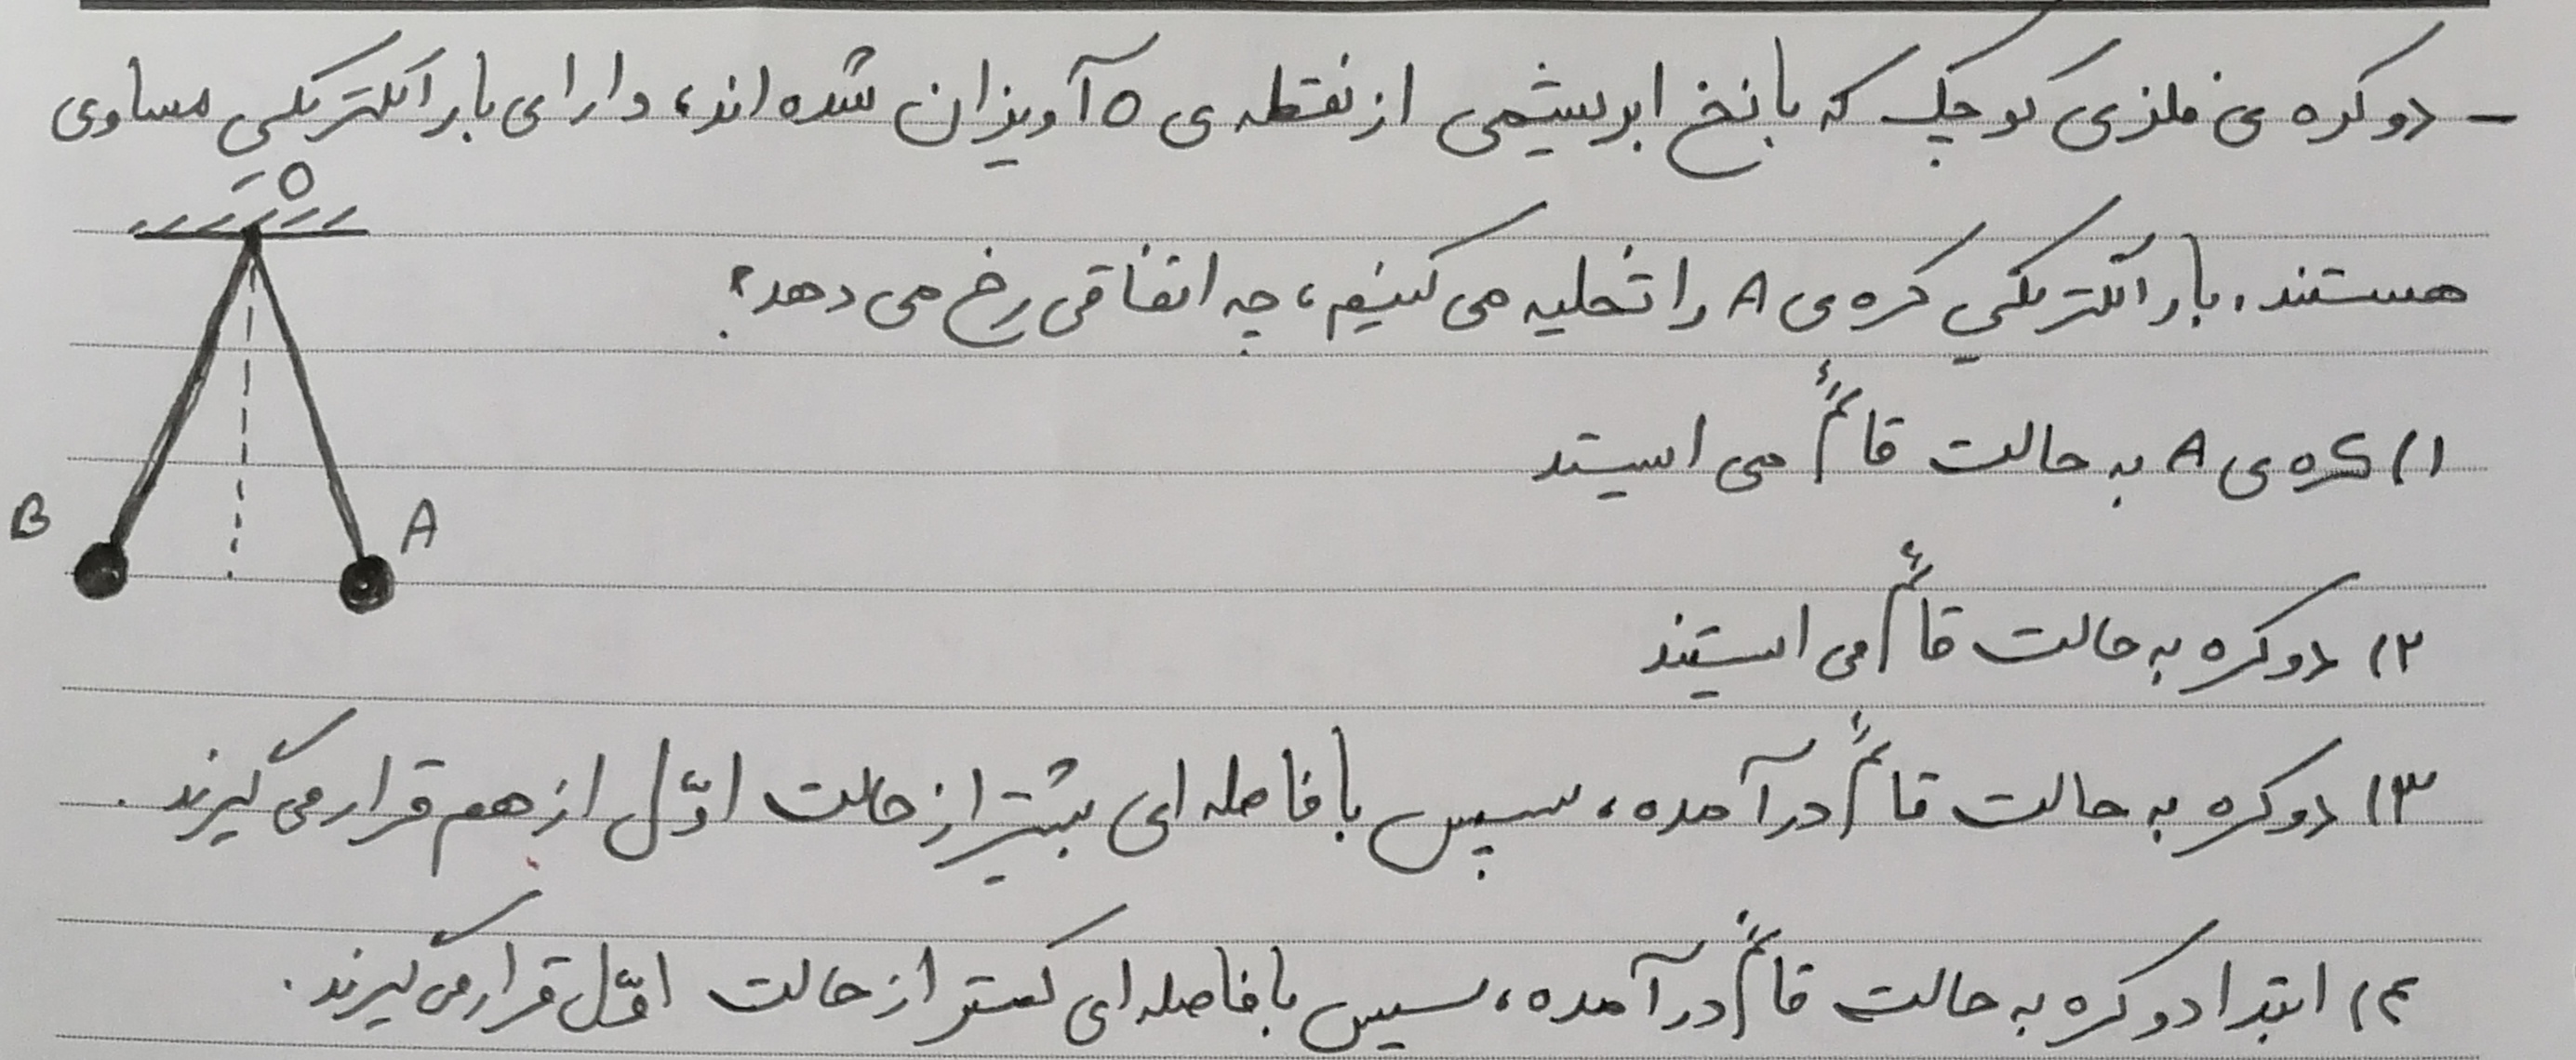 - دو کره ی فلزی کوچک که با نخ ابریشمی از نقطه ی O آویزان شده اند، دارای بار الکتریکی مساوی
هستند. بار الکتریکی کره ی A را تخلیه می کنیم، چه اتفاقی رخ می دهد؟
O
B
A
۱) کره ی A به حالت قائم می ایستد
۲) دو کره به حالت قائم می ایستند
۳) دو کره به حالت قائم درآمده، سپس با فاصله ای بیشتر از حالت اوّل از هم قرار می گیرند.
۴) ابتدا دو کره به حالت قائم درآمده، سپس با فاصله ای کمتر از حالت اوّل قرار می گیرند.